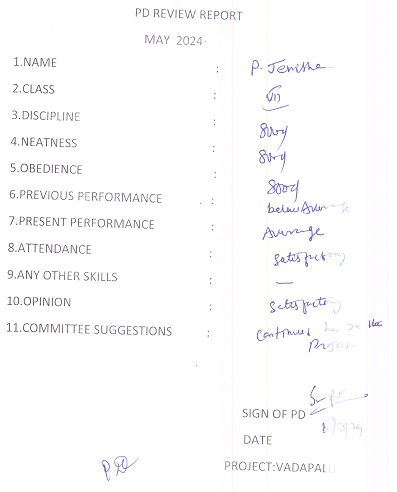 PD REVIEW REPORT
MAY 2024
1.NAME : P. Jenisha
2.CLASS : VII
3.DISCIPLINE : good
4.NEATNESS : good
5.OBEDIENCE : good
6.PREVIOUS PERFORMANCE : below Average
7.PRESENT PERFORMANCE : Average
8.ATTENDANCE : Satisfactory
9.ANY OTHER SKILLS : —
10.OPINION : Satisfactory
11.COMMITTEE SUGGESTIONS : Continues her in the
Project
SIGN OF PD
DATE
PROJECT:VADAPALLI